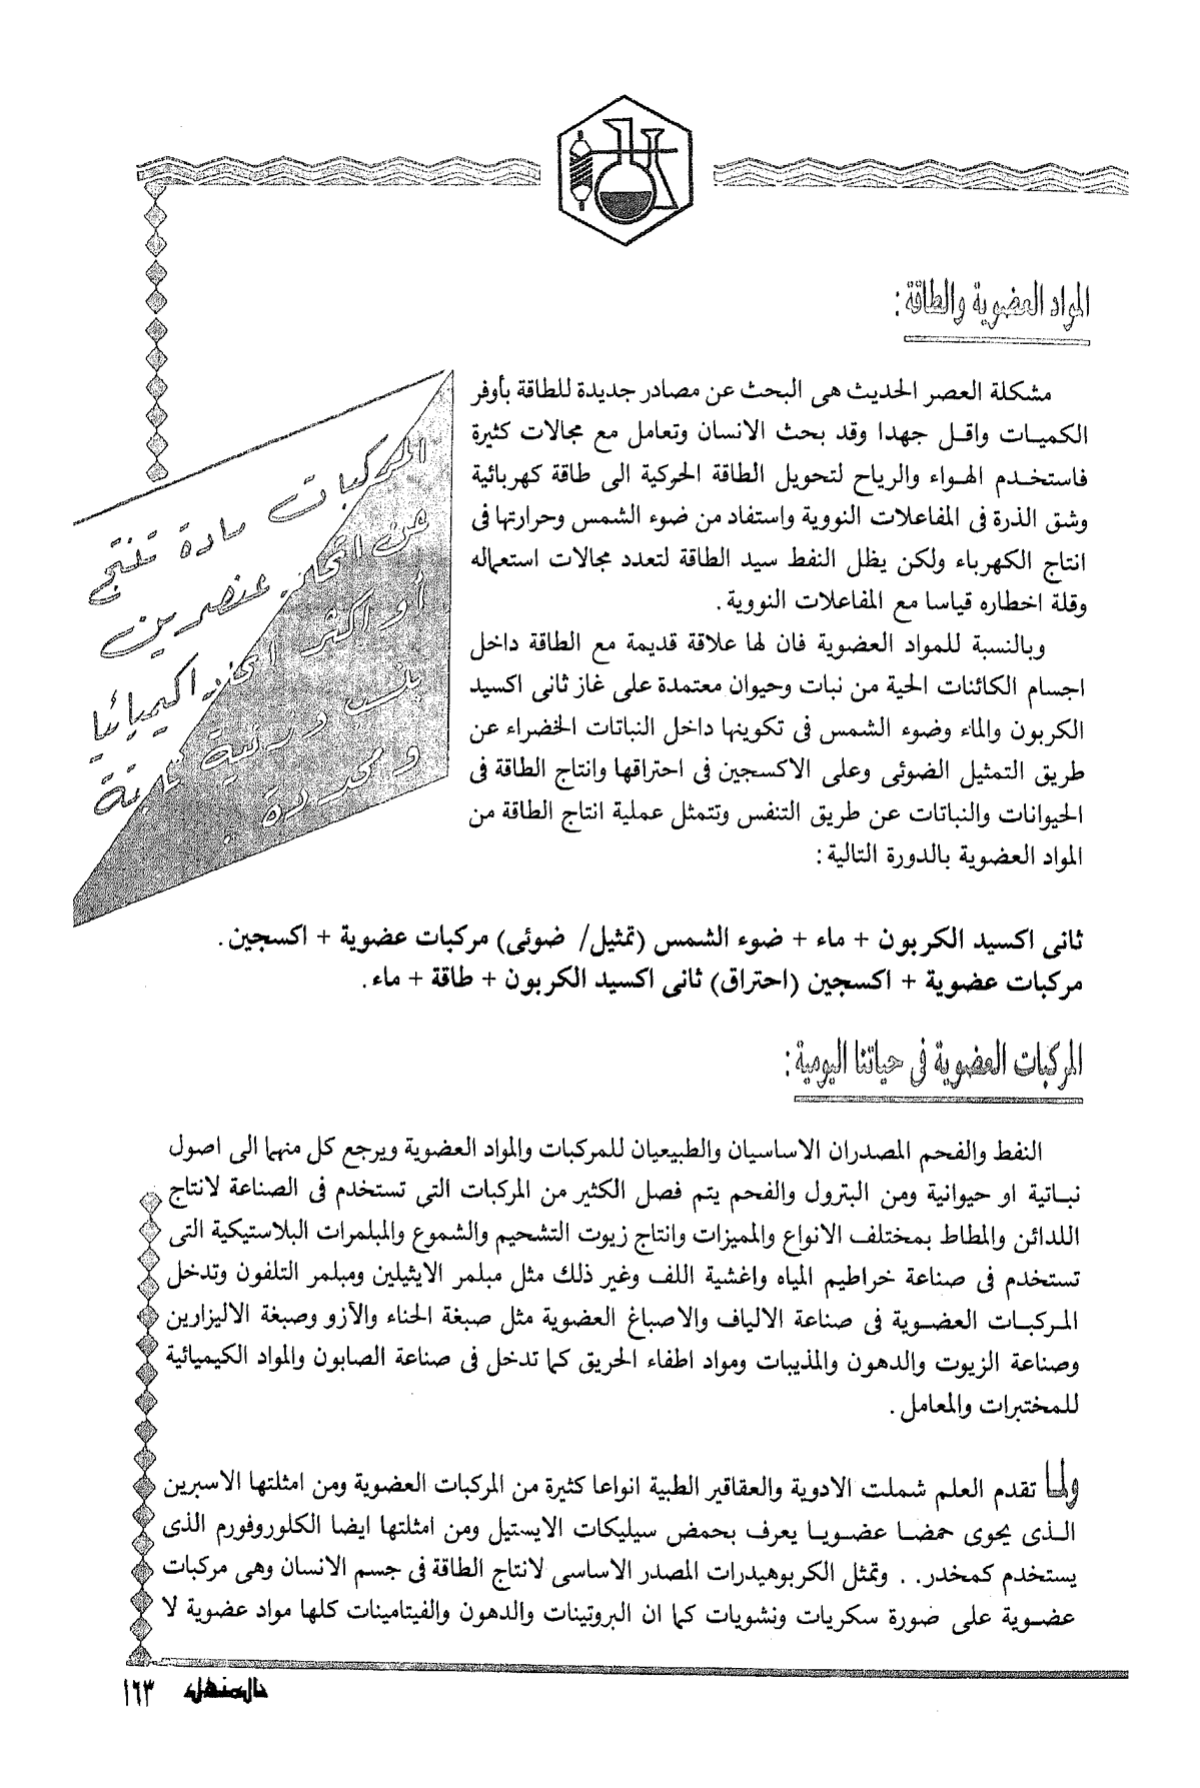 المواد العضوية والطاقة :
مشكلة العصر الحديث هى البحث عن مصادر جديدة للطاقة بأوفر
الكميات واقل جهدا وقد بحث الانسان وتعامل مع مجالات كثيرة
فاستخدم الهواء والرياح لتحويل الطاقة الحركية الى طاقة كهربائية
وشق الذرة فى المفاعلات النووية واستفاد من ضوء الشمس وحرارتها فى
انتاج الكهرباء ولكن يظل النفط سيد الطاقة لتعدد مجالات استعماله
وقلة اخطاره قياسا مع المفاعلات النووية .
وبالنسبة للمواد العضوية فان لها علاقة قديمة مع الطاقة داخل
اجسام الكائنات الحية من نبات وحيوان معتمدة على غاز ثانى اكسيد
الكربون والماء وضوء الشمس فى تكوينها داخل النباتات الخضراء عن
طريق التمثيل الضوئى وعلى الاكسجين فى احتراقها وانتاج الطاقة فى
الحيوانات والنباتات عن طريق التنفس وتتمثل عملية انتاج الطاقة من
المواد العضوية بالدورة التالية :
المركبات مادة تنتج
عن اتحاد عنصرين
أو اكثر اتحادا كيميائيا
بنسب وزنية ثابتة
ومحددة .
ثانى اكسيد الكربون + ماء + ضوء الشمس (تمثيل/ ضوئى) مركبات عضوية + اكسجين .
مركبات عضوية + اكسجين (احتراق) ثانى اكسيد الكربون + طاقة + ماء .
المركبات العضوية فى حياتنا اليومية :
النفط والفحم المصدران الاساسيان والطبيعيان للمركبات والمواد العضوية ويرجع كل منهما الى اصول
نباتية او حيوانية ومن البترول والفحم يتم فصل الكثير من المركبات التى تستخدم فى الصناعة لانتاج
اللدائن والمطاط بمختلف الانواع والمميزات وانتاج زيوت التشحيم والشموع والمبلمرات البلاستيكية التى
تستخدم فى صناعة خراطيم المياه واغشية اللف وغير ذلك مثل مبلمر الايثيلين ومبلمر التلفون وتدخل
المركبات العضوية فى صناعة الالياف والاصباغ العضوية مثل صبغة الحناء والآزو وصبغة الاليزارين
وصناعة الزيوت والدهون والمذيبات ومواد اطفاء الحريق كما تدخل فى صناعة الصابون والمواد الكيميائية
للمختبرات والمعامل .
ولما تقدم العلم شملت الادوية والعقاقير الطبية انواعا كثيرة من المركبات العضوية ومن امثلتها الاسبرين
الذى يحوى حمضا عضويا يعرف بحمض سيليكات الايستيل ومن امثلتها ايضا الكلوروفورم الذى
يستخدم كمخدر . . وتمثل الكربوهيدرات المصدر الاساسى لانتاج الطاقة فى جسم الانسان وهى مركبات
عضوية على صورة سكريات ونشويات كما ان البروتينات والدهون والفيتامينات كلها مواد عضوية لا
المنهل ١٦٣